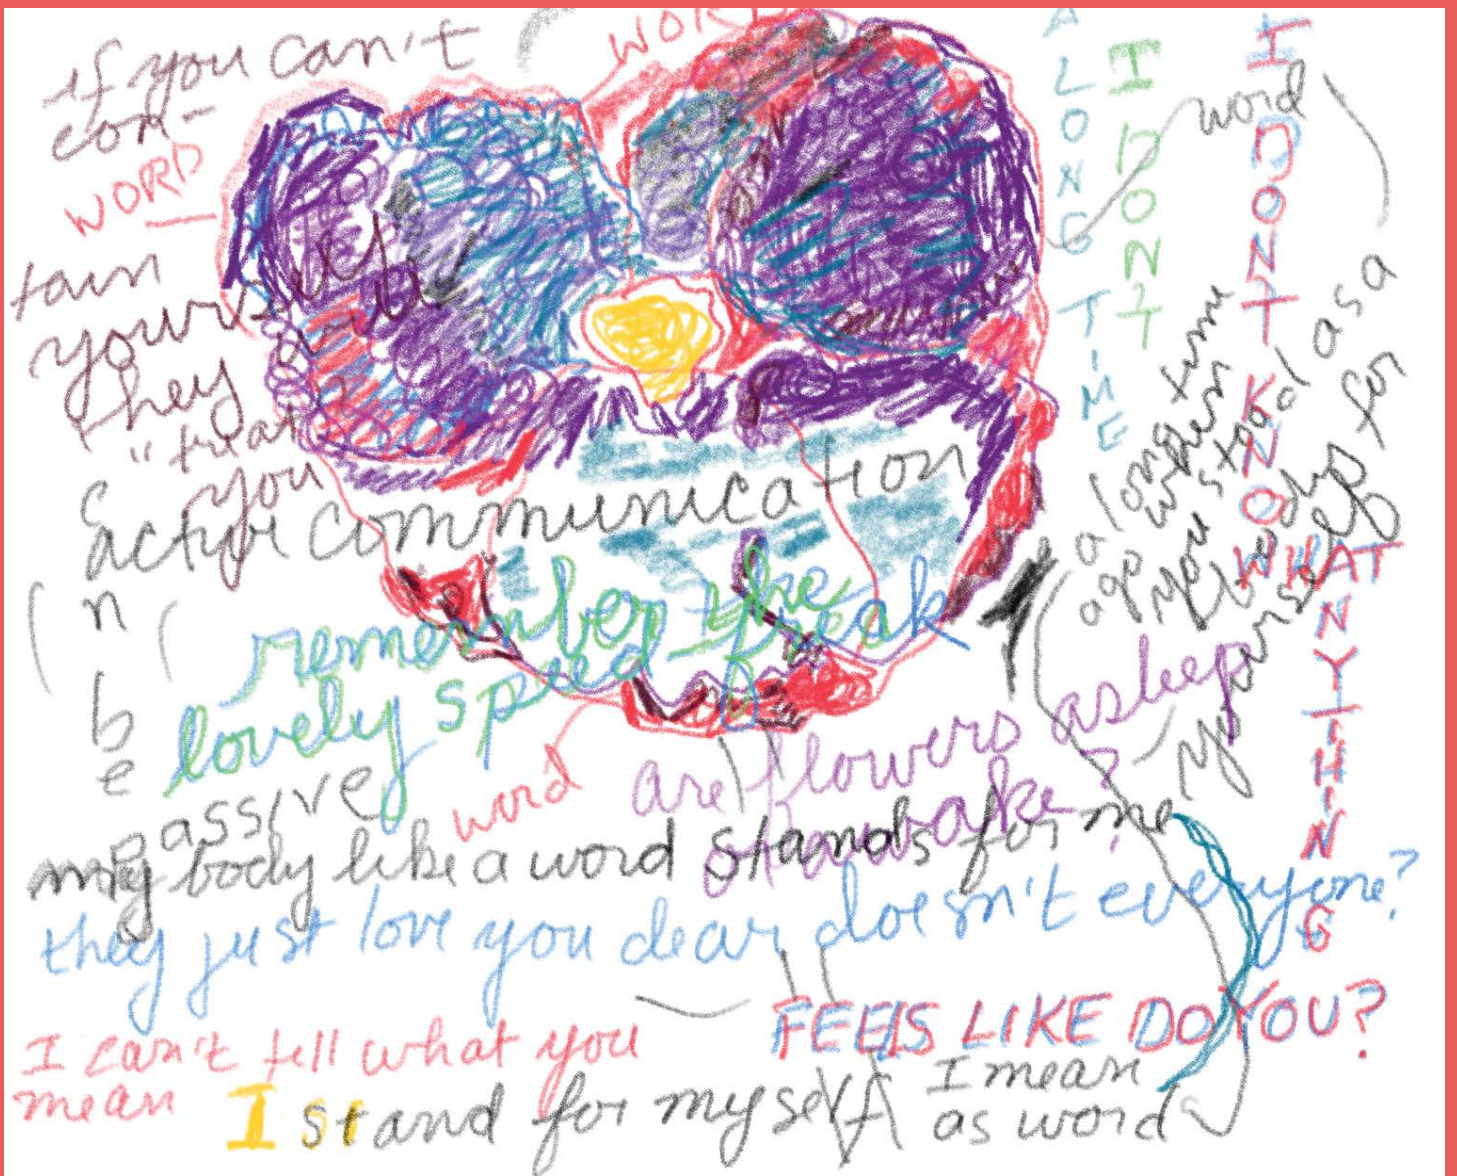 if you can't
con-
WORD
tain
yourself
they
"treat
you
WORD
active communication
can be
passive
remember the
lovely speed freak
word
are flowers asleep
or awake?
my body like a word stands for me
they just love you dear doesn't everyone?
I can't tell what you
mean
I stand for myself
I mean
as word
A LONG TIME
I DONT
word
I DONT KNOW WHAT ANYTHING
FEELS LIKE DO YOU?
a long time
ago when
you stood as a
body for
yourself